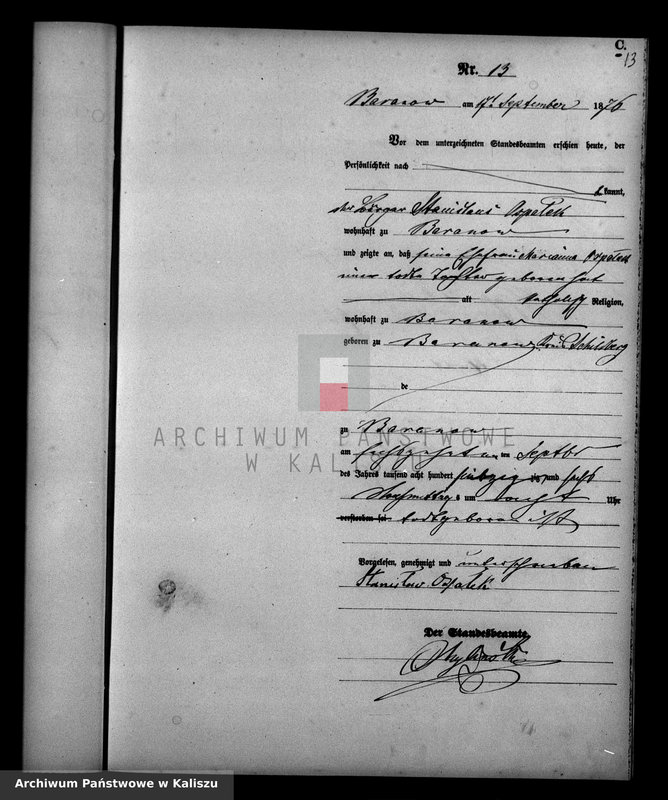 C.
13
Nr. 13
Baranow am 17t September 1876
Vor dem unterzeichneten Standesbeamten erschien heute, der
Persönlichkeit nach
kannt,
der Bürger Stanislaus Ospałek
wohnhaft zu Baranow
und zeigte an, daß seine Ehefrau Marianna Ospałek
eine todte Tochter geboren hat
alt katholisch Religion,
wohnhaft zu Baranow
geboren zu Baranow Kreis Schildberg
de
zu Baranow
am sechszehnten ten Septbr
des Jahres tausend acht hundert siebzig und sechs
Nachmittags um acht Uhr
verstorben sei todtgeboren ist
Vorgelesen, genehmigt und unterschrieben
Stanisław Ospałek
Der Standesbeamte.
ARCHIWUM PAŃSTWOWE
W KALISZU
Archiwum Państwowe w Kaliszu